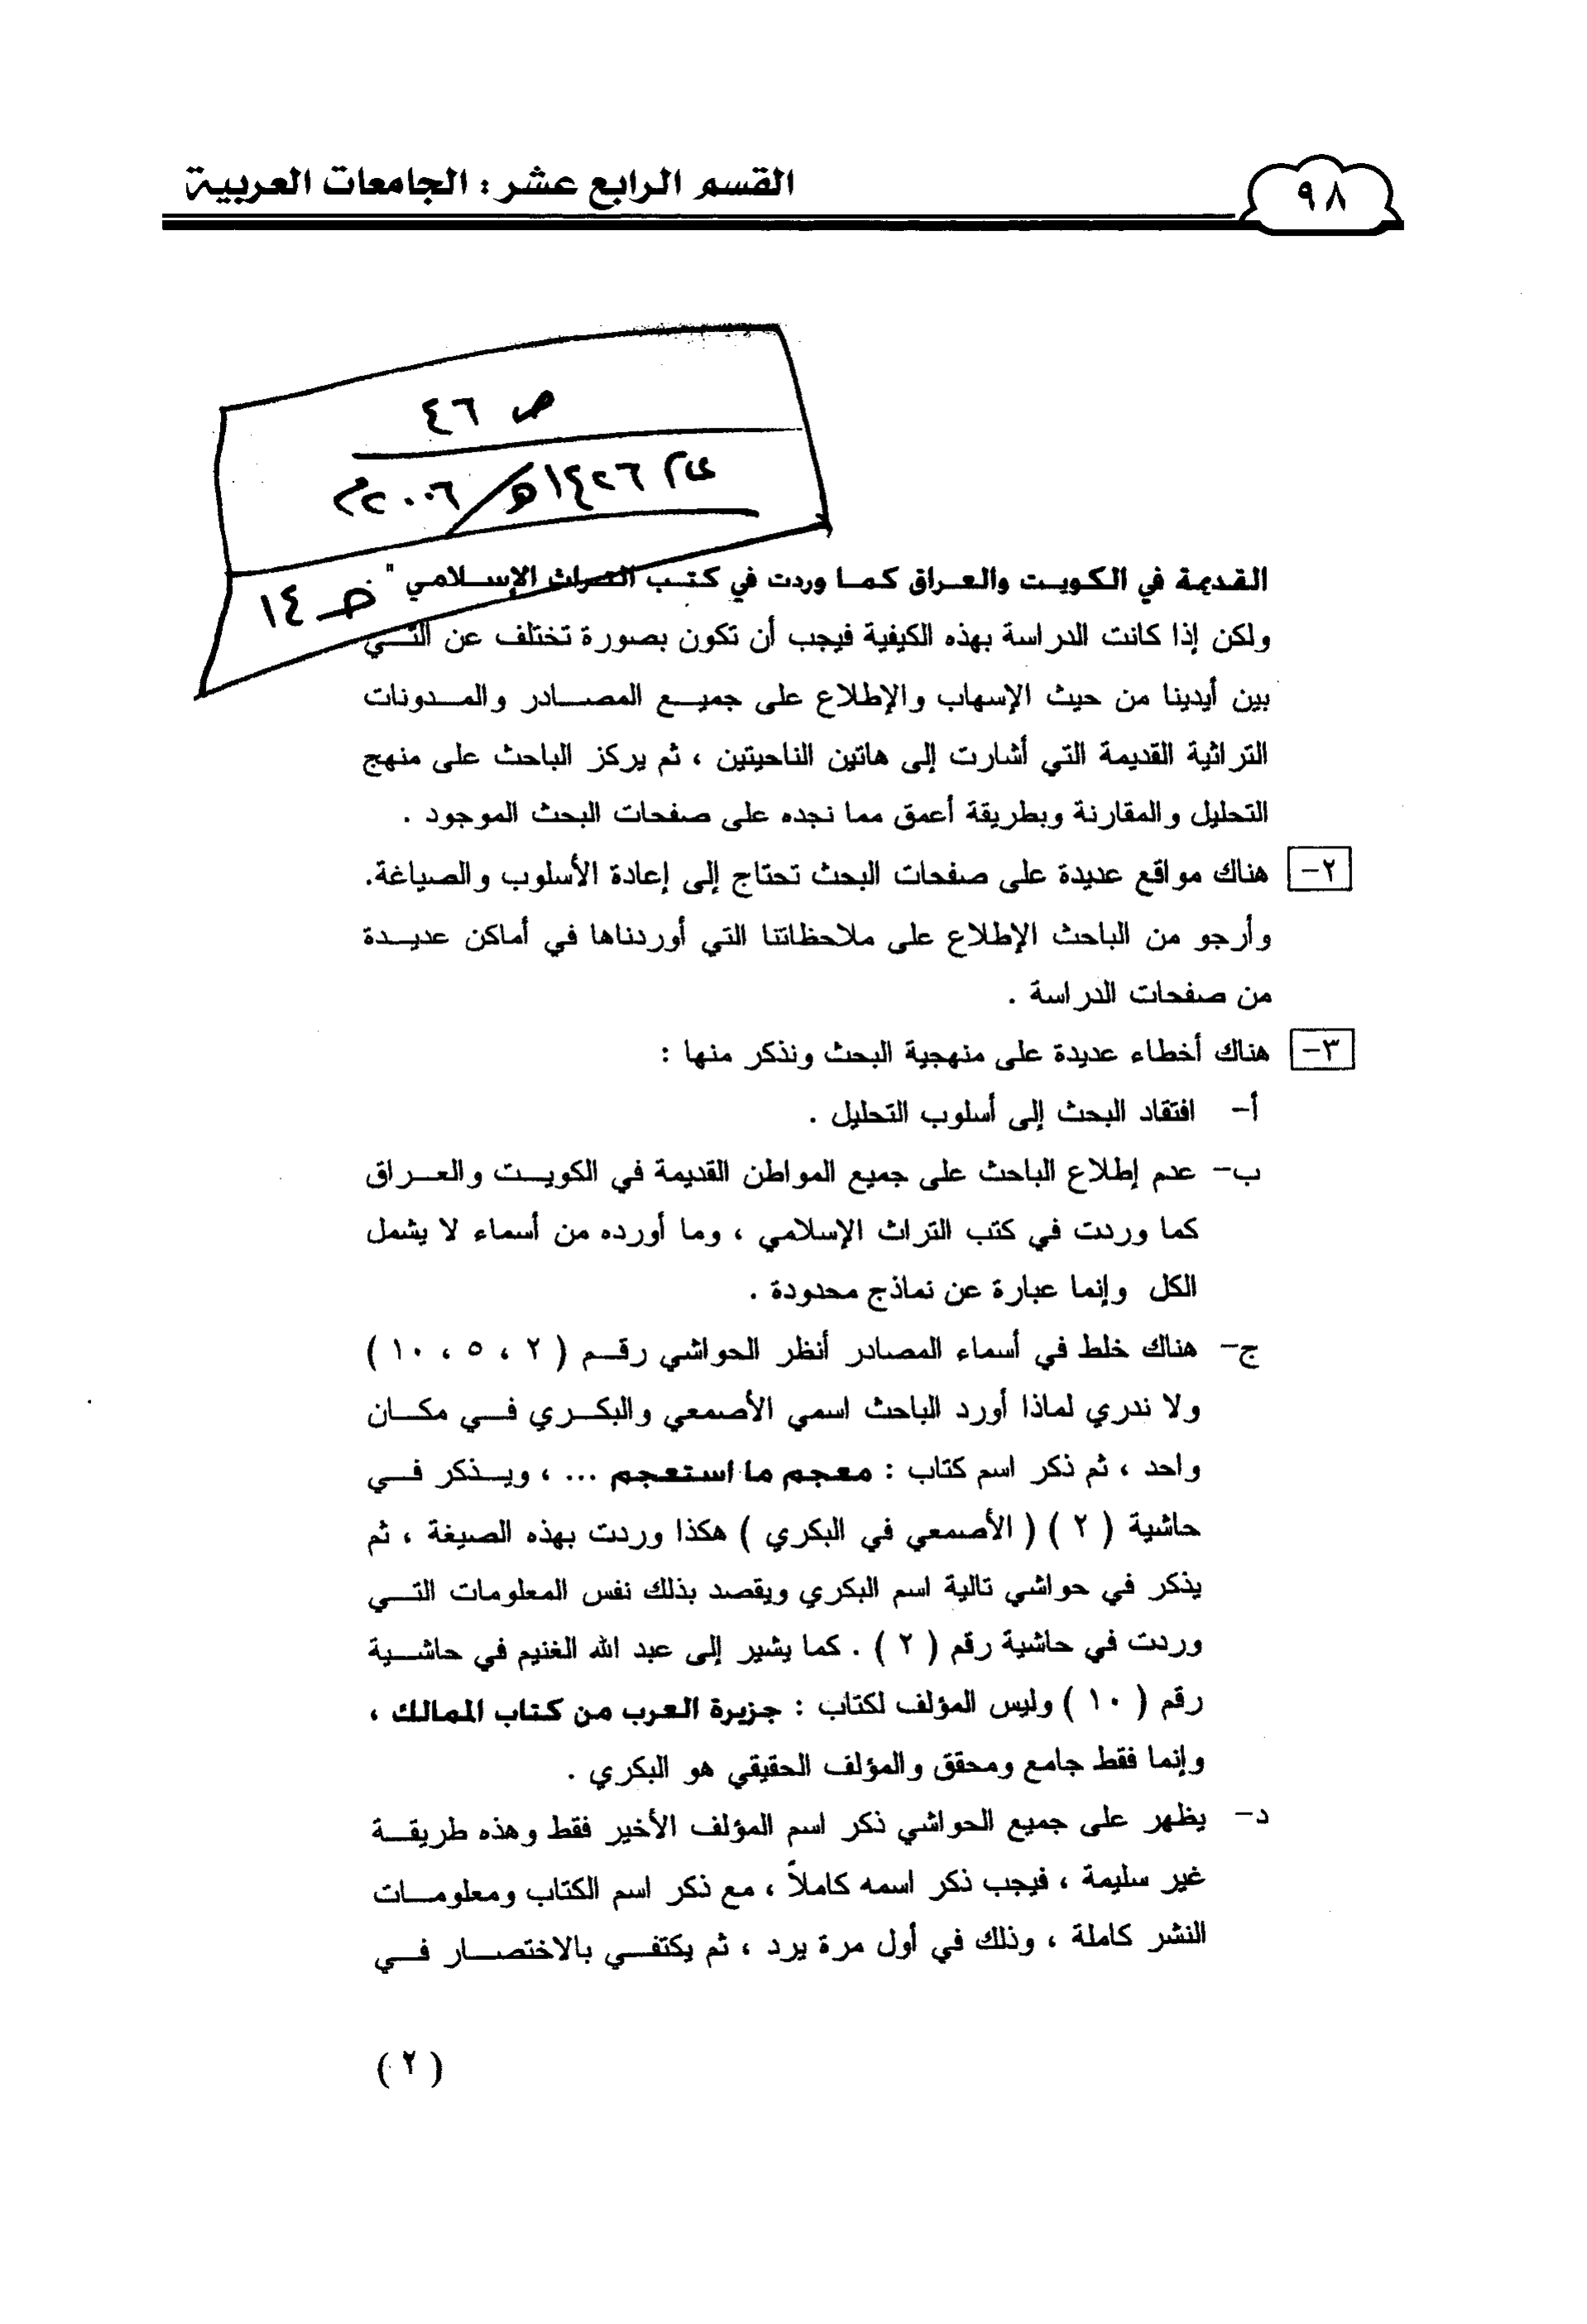 القسم الرابع عشر : الجامعات العربية
٩٨
ص ٤٦
عام ١٤٢٦هـ/٢٠٠٦م
خـ ١٤
القديمة في الكويت والعراق كما وردت في كتب التراث الإسلامي "
ولكن إذا كانت الدراسة بهذه الكيفية فيجب أن تكون بصورة تختلف عن التي
بين أيدينا من حيث الإسهاب والإطلاع على جميع المصادر والمدونات
التراثية القديمة التي أشارت إلى هاتين الناحيتين ، ثم يركز الباحث على منهج
التحليل والمقارنة وبطريقة أعمق مما نجده على صفحات البحث الموجود .
٢- هناك مواقع عديدة على صفحات البحث تحتاج إلى إعادة الأسلوب والصياغة.
وأرجو من الباحث الإطلاع على ملاحظاتنا التي أوردناها في أماكن عديدة
من صفحات الدراسة .
٣- هناك أخطاء عديدة على منهجية البحث ونذكر منها :
أ- افتقاد البحث إلى أسلوب التحليل .
ب- عدم إطلاع الباحث على جميع المواطن القديمة في الكويت والعراق
كما وردت في كتب التراث الإسلامي ، وما أورده من أسماء لا يشمل
الكل وإنما عبارة عن نماذج محدودة .
ج- هناك خلط في أسماء المصادر أنظر الحواشي رقم ( ٢ ، ٥ ، ١٠ )
ولا ندري لماذا أورد الباحث اسمي الأصمعي والبكري في مكان
واحد ، ثم ذكر اسم كتاب : معجم ما استعجم ... ، ويذكر في
حاشية ( ٢ ) ( الأصمعي في البكري ) هكذا وردت بهذه الصيغة ، ثم
يذكر في حواشي تالية اسم البكري ويقصد بذلك نفس المعلومات التي
وردت في حاشية رقم ( ٢ ) . كما يشير إلى عبد الله الغنيم في حاشية
رقم ( ١٠ ) وليس المؤلف لكتاب : جزيرة العرب من كتاب الممالك ،
وإنما فقط جامع ومحقق والمؤلف الحقيقي هو البكري .
د- يظهر على جميع الحواشي ذكر اسم المؤلف الأخير فقط وهذه طريقة
غير سليمة ، فيجب ذكر اسمه كاملاً ، مع ذكر اسم الكتاب ومعلومات
النشر كاملة ، وذلك في أول مرة يرد ، ثم يكتفي بالاختصار في
( ٢ )